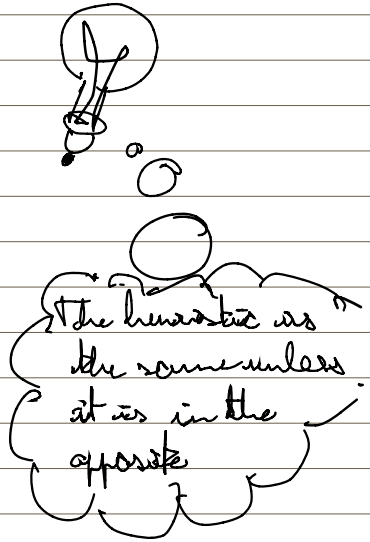 The heuristic is
the same unless
it is in the
opposite